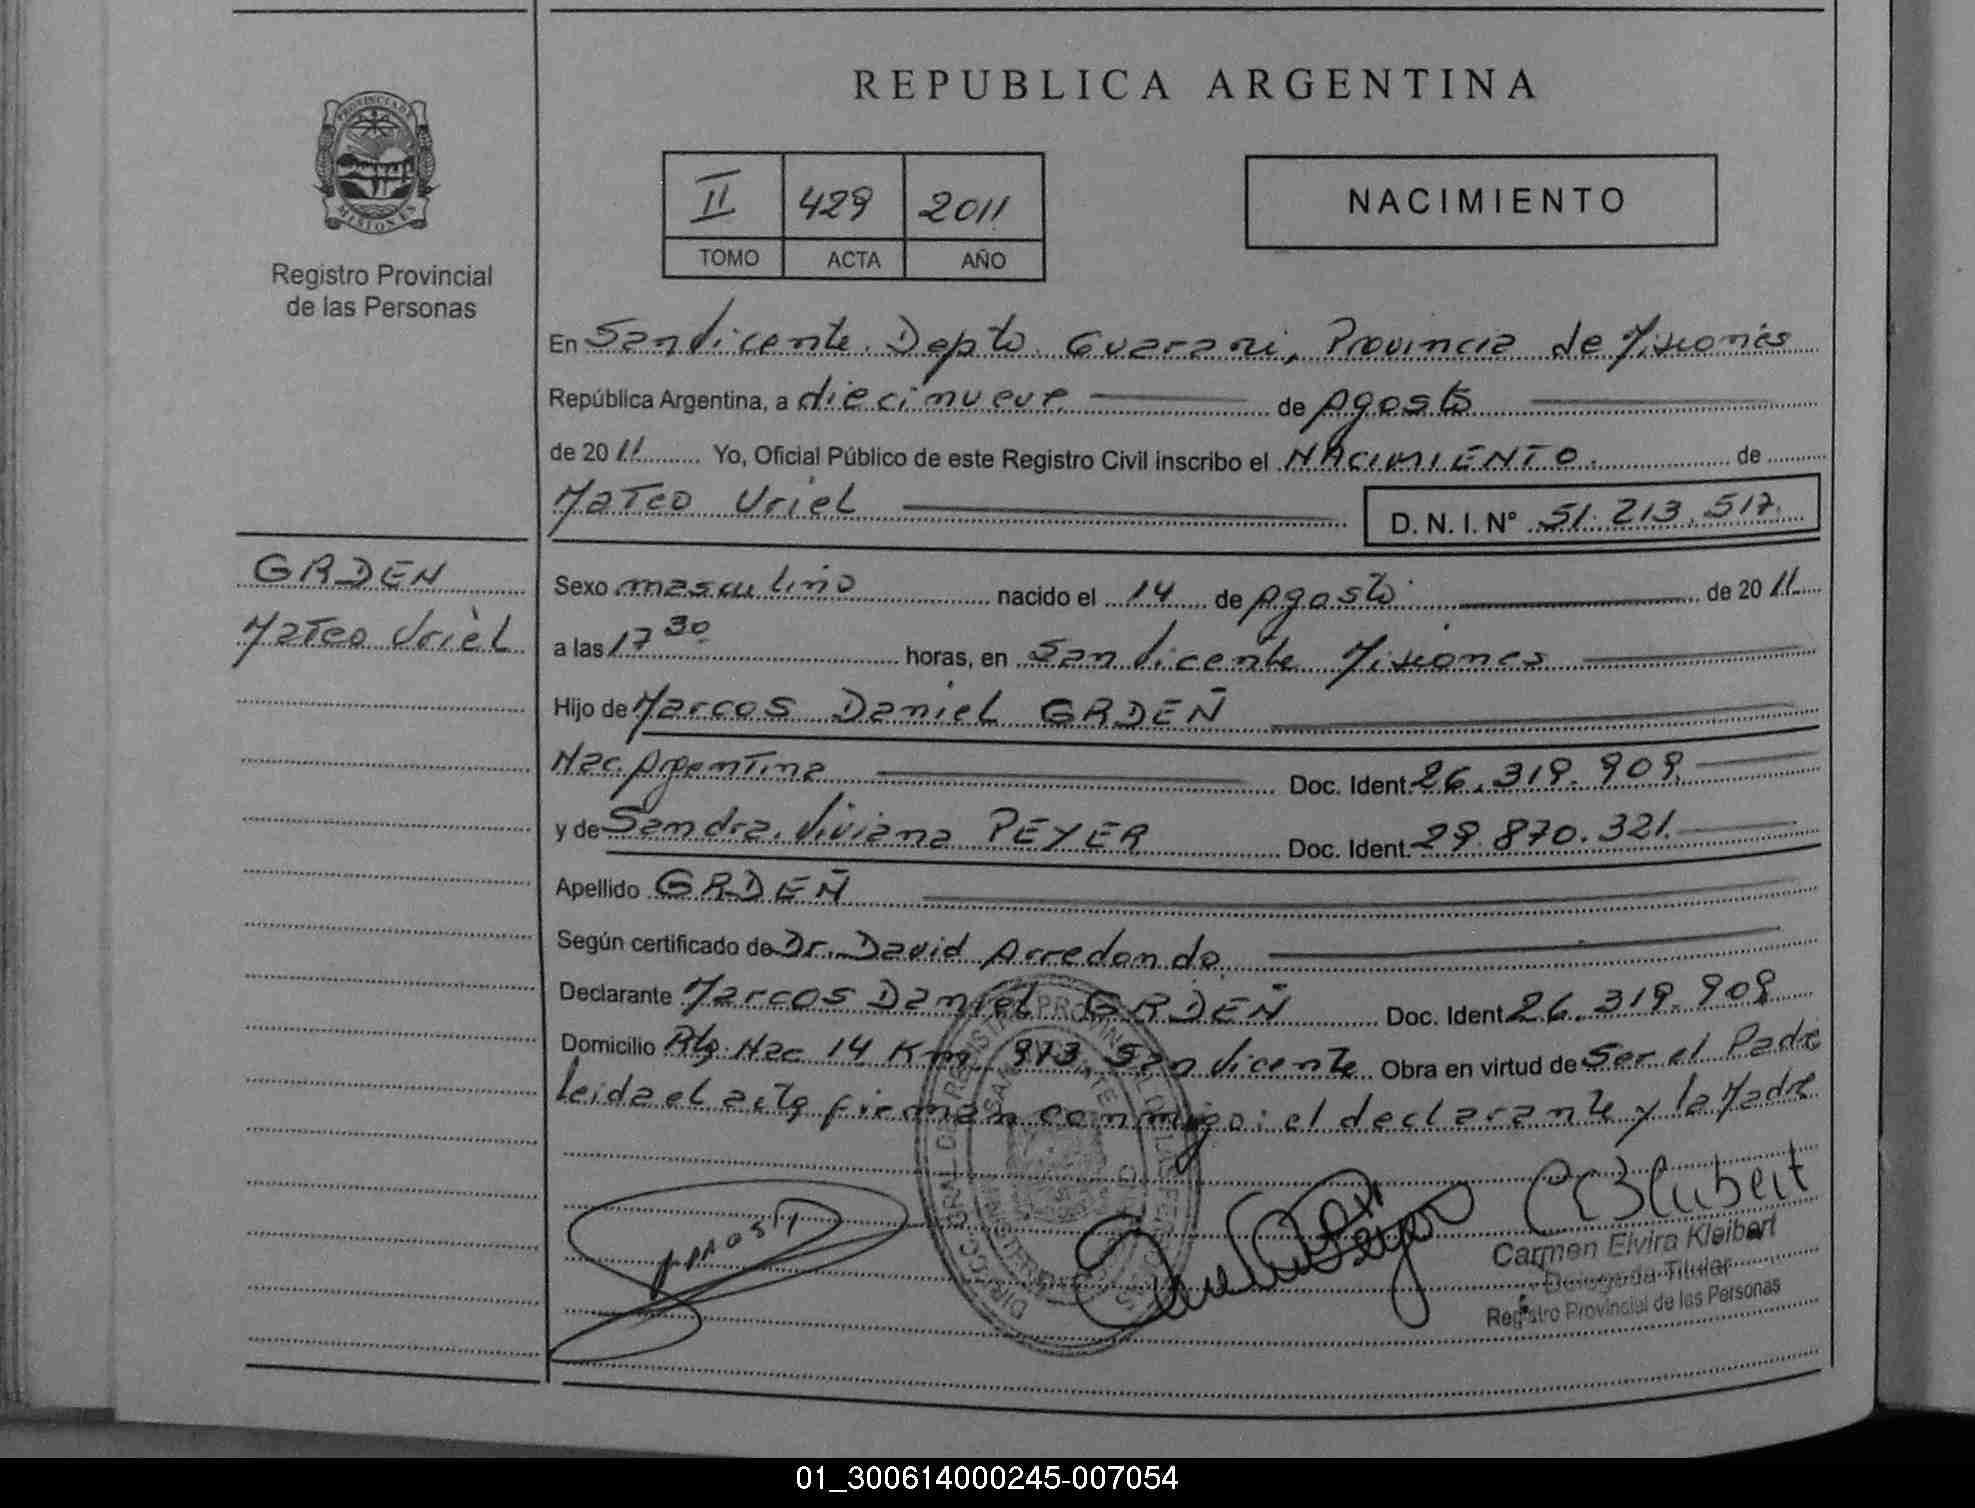 REPUBLICA ARGENTINA
PROVINCIA DE
MISIONES
Registro Provincial
de las Personas
II 429 2011
TOMO ACTA AÑO
NACIMIENTO
En San Vicente. Depto. Guarani, Provincia de Misiones
República Argentina, a diecinueve de Agosto
de 2011 Yo, Oficial Público de este Registro Civil inscribo el NACIMIENTO. de
Mateo Uriel D. N. I. N° 51.213.517.
GRDEN
Mateo Uriel
Sexo masculino nacido el 14 de Agosto de 2011
a las 17 30 horas, en San Vicente Misiones
Hijo de Marcos Daniel GRDEÑ
Nac. Argentina Doc. Ident. 26.319.909.
y de Sandra Viviana PEYER Doc. Ident. 29.870.321.
Apellido GRDEÑ
Según certificado de Dr. David Arredondo
Declarante Marcos Daniel GRDEÑ Doc. Ident 26.319.909
Domicilio Rta. Nac 14 Km 973 San Vicente Obra en virtud de Ser el Padre
leida el acta firman conmigo: el declarante y la Madre
Carmen Elvira Kleibert
Delegada Titular
Registro Provincial de las Personas
01_300614000245-007054